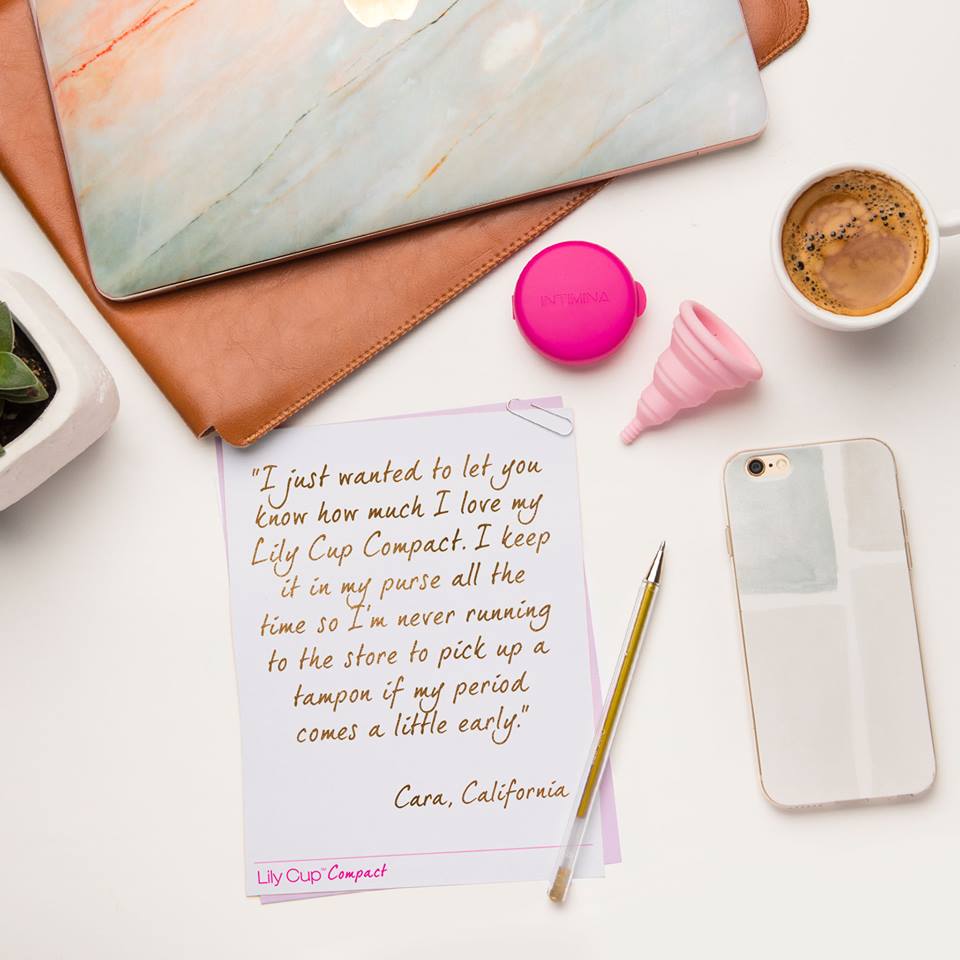 INTIMINA
"I just wanted to let you
know how much I love my
Lily Cup Compact. I keep
it in my purse all the
time so I'm never running
to the store to pick up a
tampon if my period
comes a little early."
Cara, California
Lily Cup™ Compact